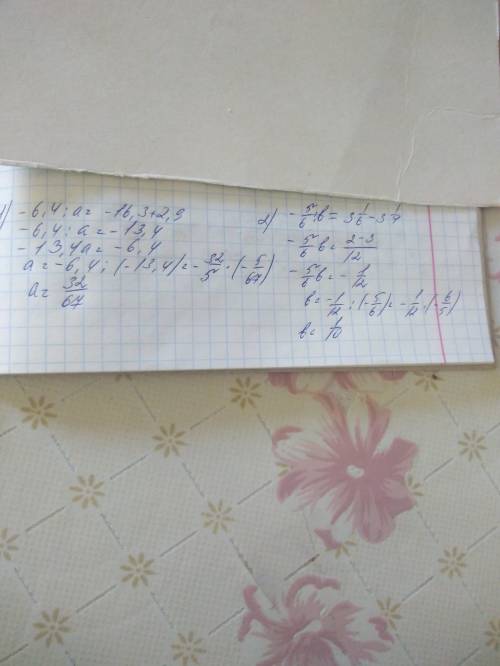 1) -6,4 : a = -16,3+2,9
-6,4 : a = -13,4
-13,4a = -6,4
a = -6,4 : (-13,4) = -32/5 · (-5/67)
a = 32/67
2) -5/6 b = 3 1/6 - 3 1/4
-5/6 b = 2-3/12
-5/6 b = -1/12
b = -1/12 : (-5/6) = -1/12 · (-6/5)
b = 1/10